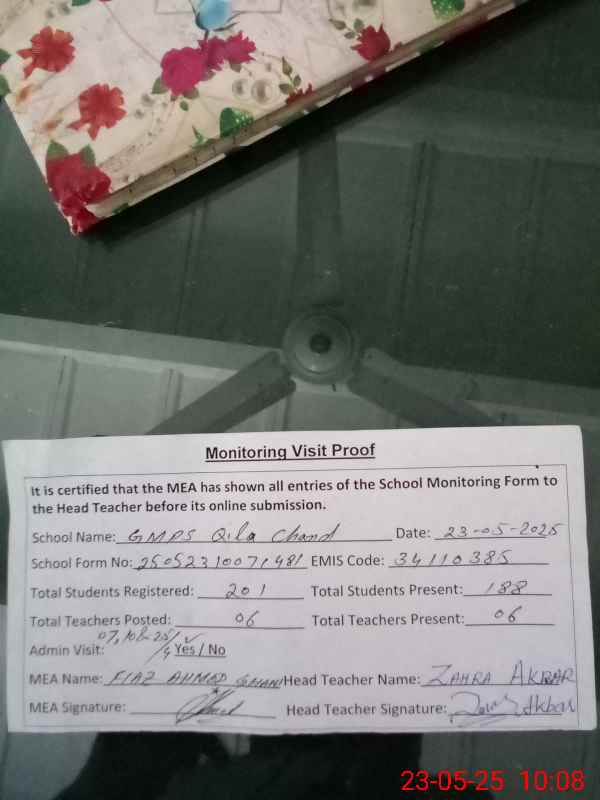 Monitoring Visit Proof
It is certified that the MEA has shown all entries of the School Monitoring Form to
the Head Teacher before its online submission.
School Name: GMPS Qila Chand Date: 23-05-2025
School Form No: 25052310071481 EMIS Code: 34110385
Total Students Registered: 201 Total Students Present: 188
Total Teachers Posted: 06 Total Teachers Present: 06
Admin Visit: Yes / No
MEA Name: FIAZ AHMAD Head Teacher Name: ZAHRA AKBAR
MEA Signature: Head Teacher Signature: Akbar
23-05-25 10:08